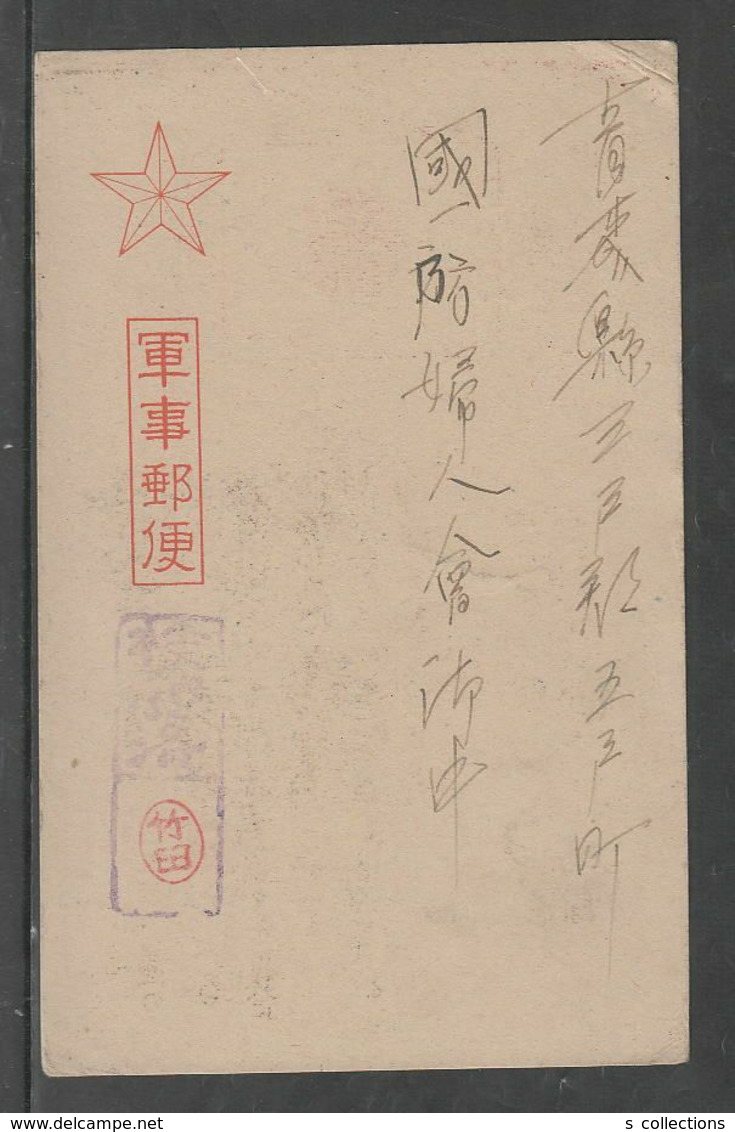 青森縣三戸郡五戸町
國防婦人會御中
軍事郵便
検閲済
竹田
s collections